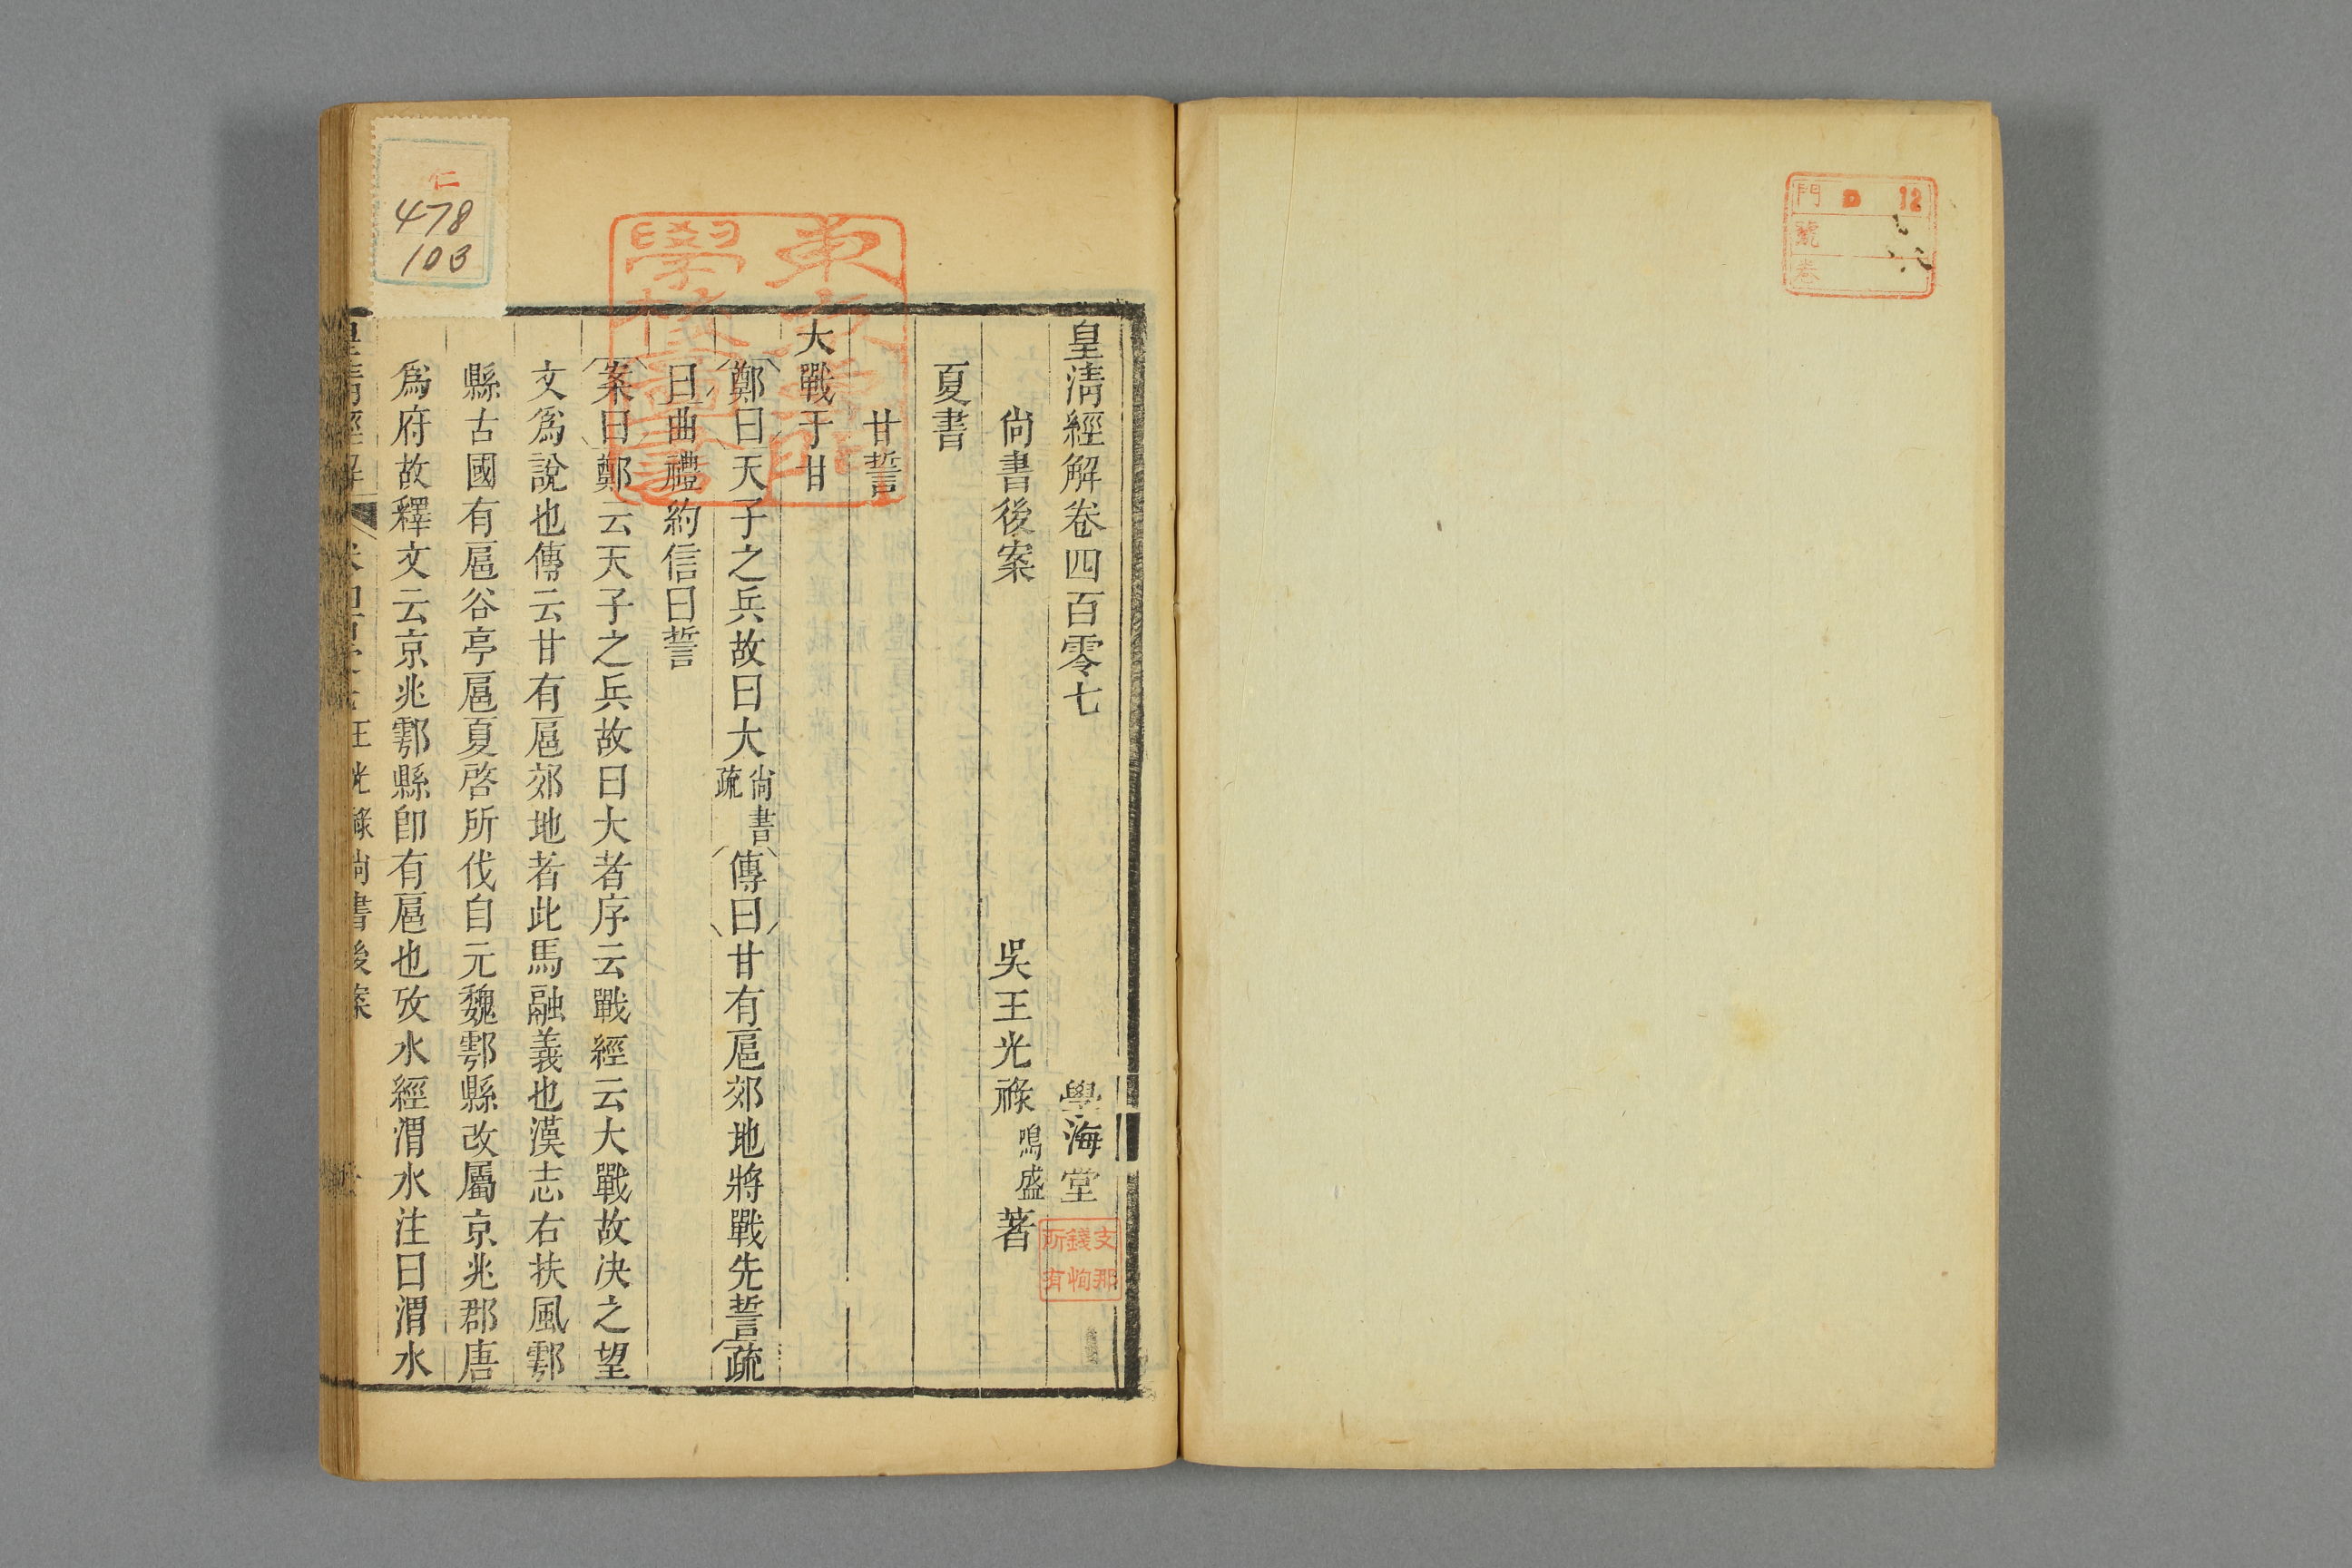 門 D 12
號
卷
皇清經解卷四百零七 學海堂
支那
錢恂
所有
尙書後案 吳王光祿鳴盛著
夏書
甘誓
大戰于甘
鄭曰天子之兵故曰大尙書疏傳曰甘有扈郊地將戰先誓疏
曰曲禮約信曰誓
案曰鄭云天子之兵故曰大者序云戰經云大戰故決之望
文爲說也傳云甘有扈郊地者此馬融義也漢志右扶風鄠
縣古國有扈谷亭扈夏啓所伐自元魏鄠縣改屬京兆郡唐
爲府故釋文云京兆鄠縣卽有扈也攷水經渭水注曰渭水
皇清經解 王光祿尙書後案
東京專門
學校圖書
仁
478
103